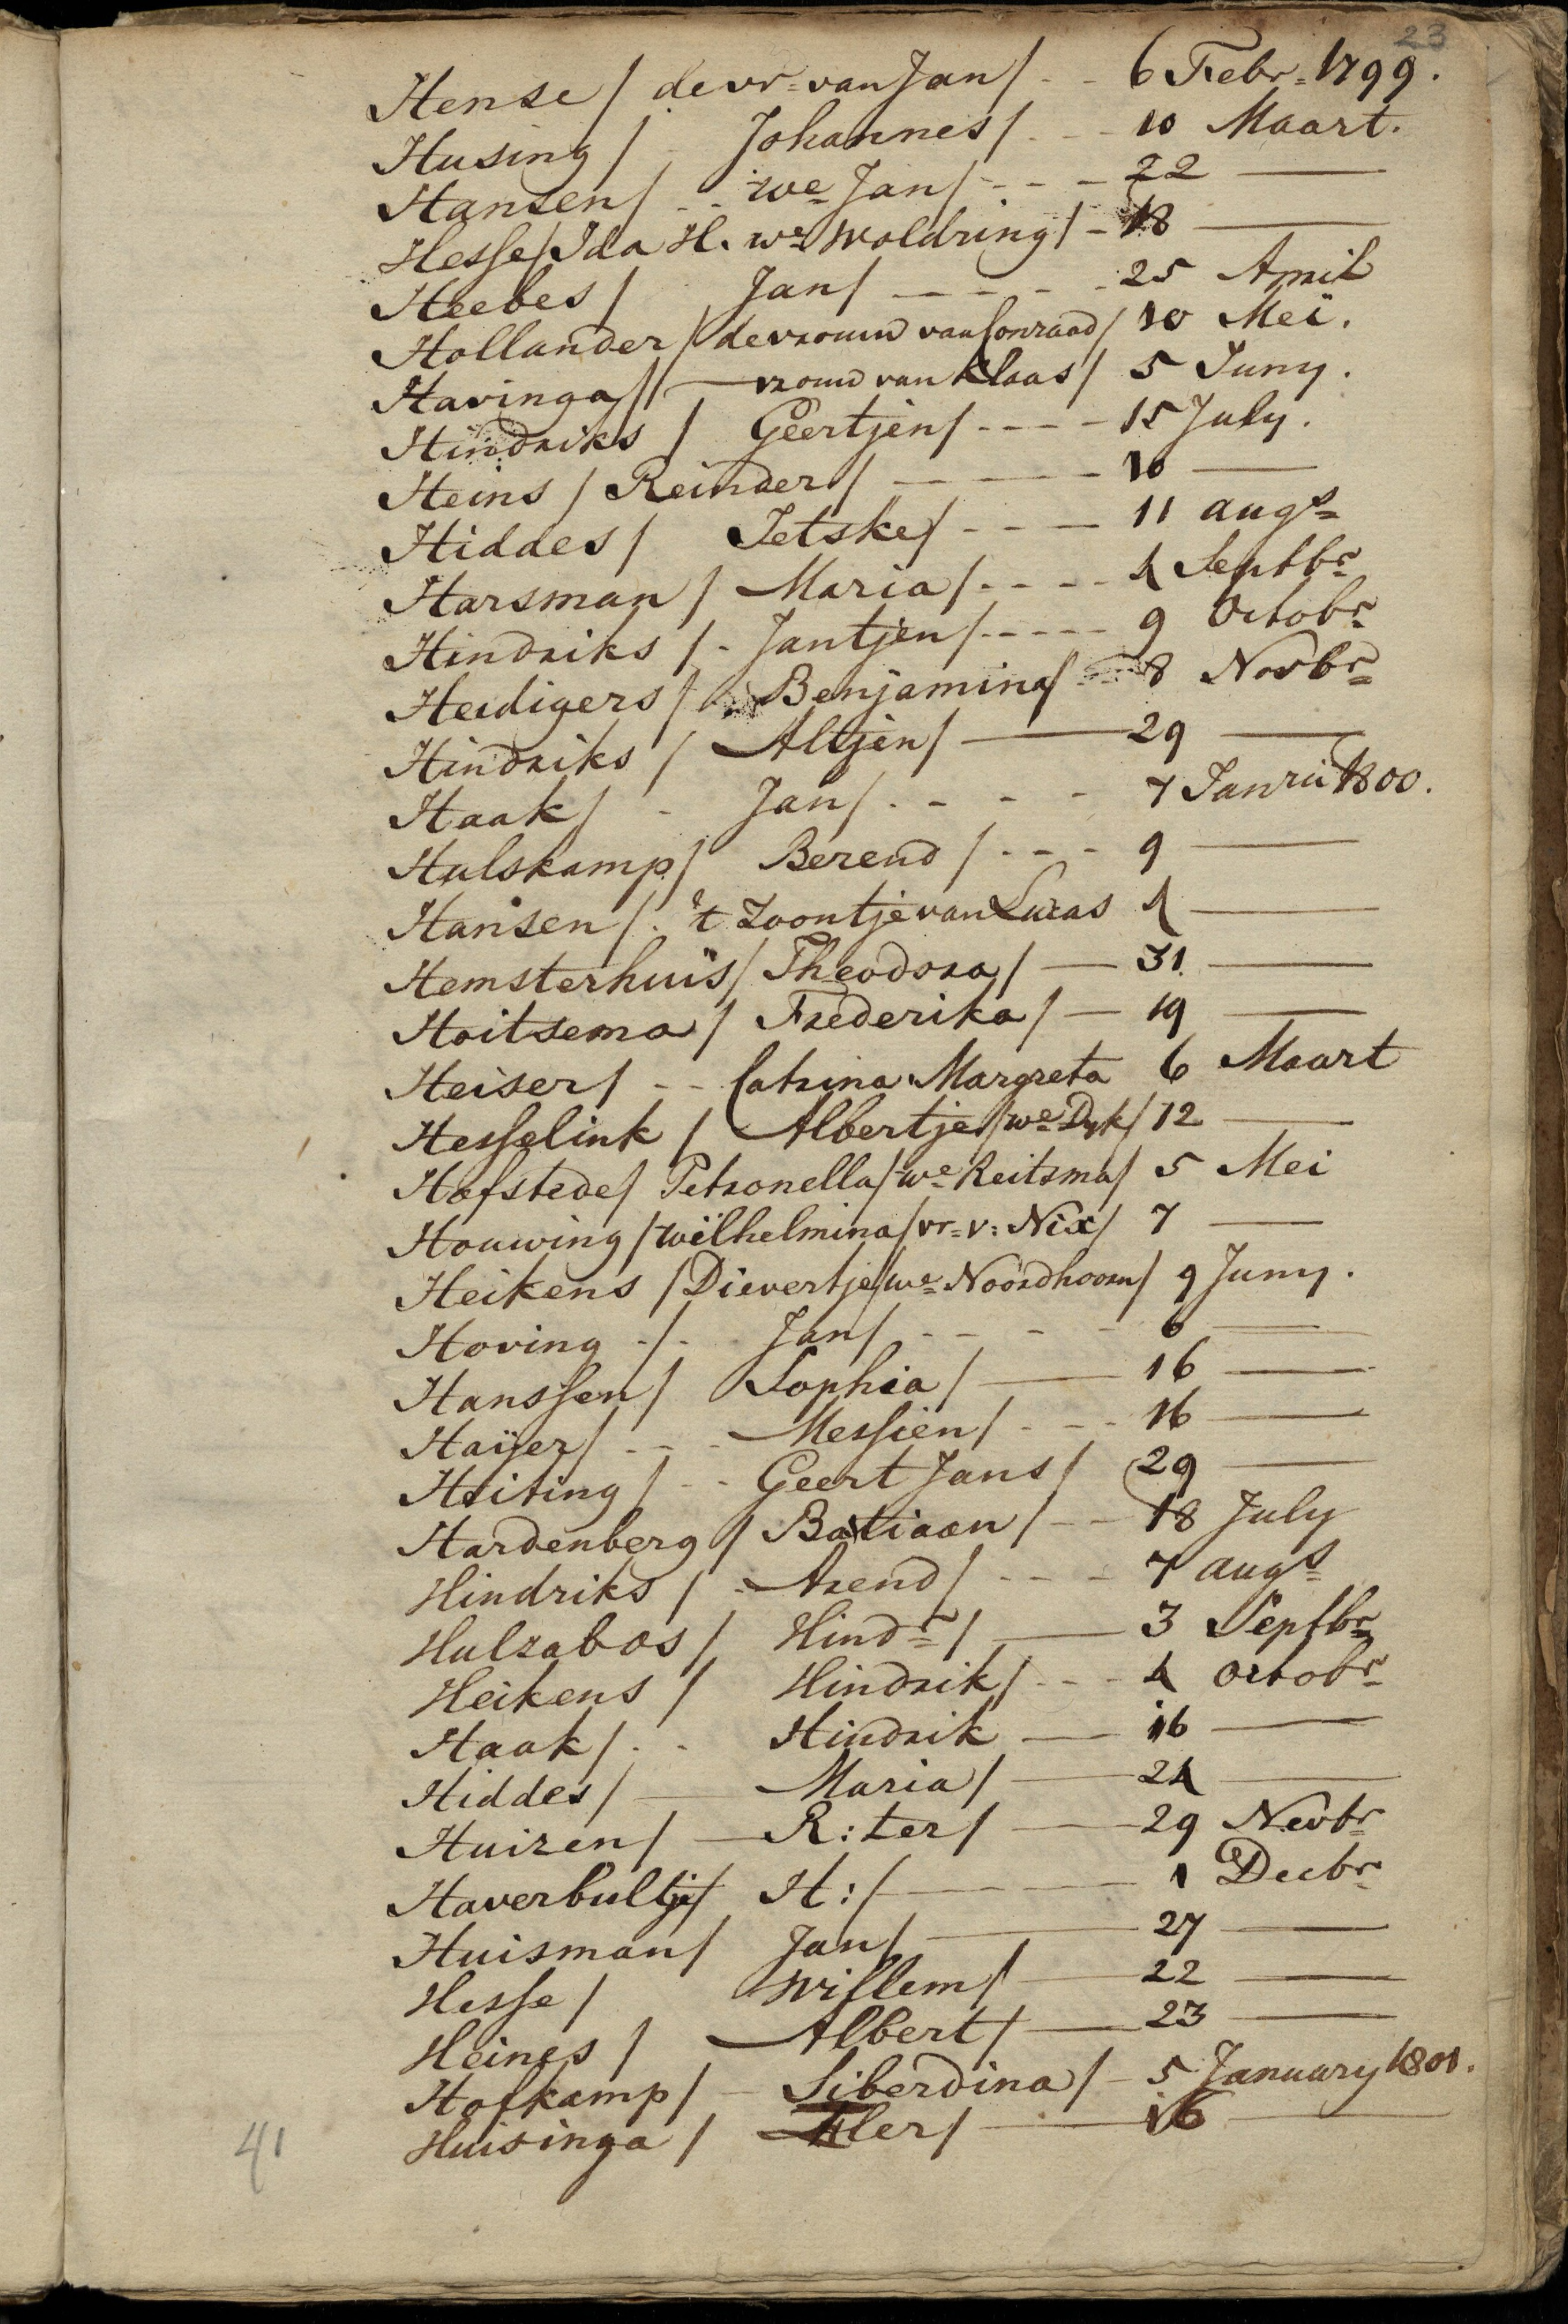 23
Hense / de vr= van Jan / - - 6 Febr= 1799.
Husing / Johannes / - - 10 Maart.
Hansen / - - we Jan / - - - 22 —
Hesse / Ida H. we Woldring / - 18 —
Heebes / Jan / - - - - 25 April
Hollander / de vrouw van Conraad / 10 Mei.
Havinga / — vrouw van Klaas / 5 Juny.
Hindriks / Geertjen / - - - - 15 July.
Heins / Reinder / - - - - 10 —
Hiddes / Jetske / - - - 11 augs
Harsman / Maria / - - - - 4 Septbr
Hindriks / - Jantjen / - - - - 9 Octobr
Heidigers / Benjamina / - - 8 Novbr
Hindriks / Altjen / — 29 —
Haak / - Jan / - - - - 7 Janrii 1800.
Hulskamp / Berend / - - - 9 —
Hansen / . 't Zoontje van Lucas 4 —
Hemsterhuis / Theodora / — 31 —
Hoitsema / Frederika / — 19 —
Heiser / - - Catrina Margreta 6 Maart
Hesselink / Albertje / we Dyk / 12 —
Hofstede / Petronella / we Reitsma / 5 Mei
Houwing / Wilhelmina / vr= v: Nix / 7 —
Heikens / Dievertje / we Noordhoorn / 9 Juny.
Hoving - / - Jan / - - - - 6 —
Hanssen / Sophia / — 16 —
Haijer / - - - Messien / - - - 16 —
Hsiting / - - Geert Jans / 29 —
Hardenberg / Batiaan / - - 18 July
Hindriks / - Arend / - - - 7 augs
Hulzabos / Hindr / — 3 Septbr
Heikens / Hindrik / - - - 4 Octobr
Haak / - - Hindrik — 16 —
Hiddes / — Maria / — 24 —
Huizen / — R: ter / — 29 Novbr
Haverbultje / H: / — 1 Decbr
Huisman / Jan / — 27 —
Hesse / Willem / — 22 —
Heines / Albert / — 23 —
Hofkamp / - Siberdina / - 5 January 1801.
Huisinga / Hler / — 16 —
41